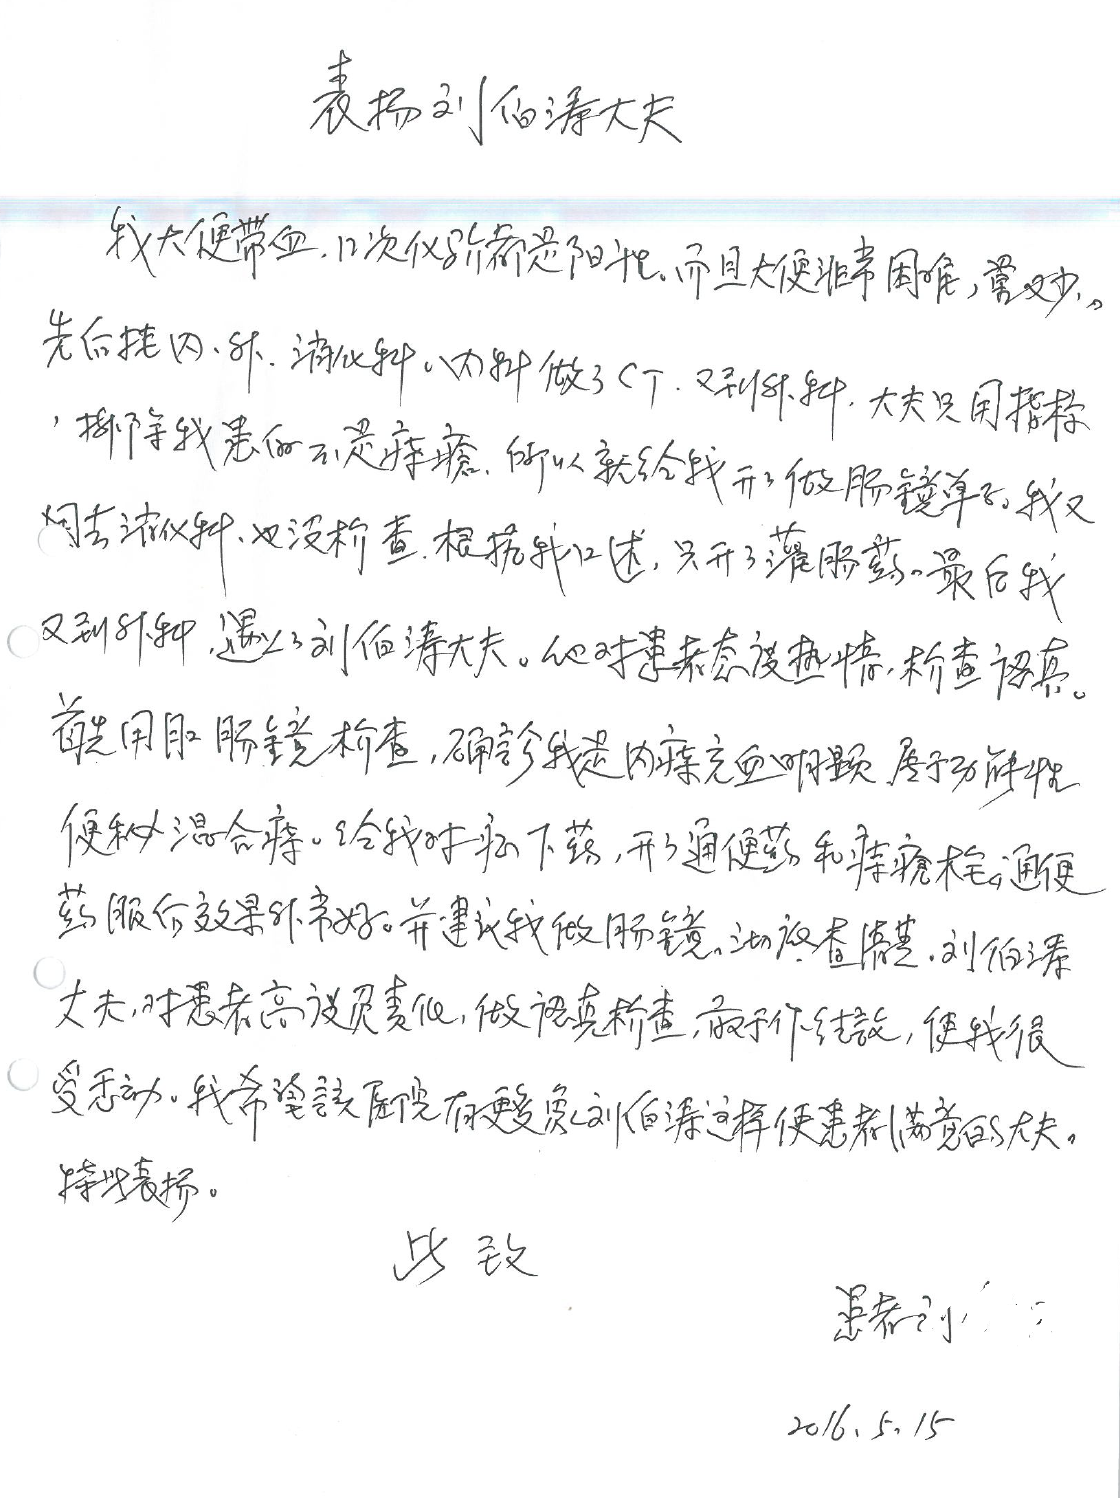 表扬刘伯涛大夫
我大便带血，12次化验都是阳性。而且大便非常困难，量又少。
先后挂内、外、消化科。内科做了CT、又到外科，大夫只用指检
，排除我患的不是痔疮，所以就给我开了做肠镜单子。我又
回去消化科，也没检查，根据我口述，只开了灌肠药。最后我
又到外科，遇上了刘伯涛大夫。他对患者态度热情，检查认真。
首先用肛肠镜检查，确诊我是内痔充血明显，属于功能性
便秘混合痔。给我对症下药，开了通便药和痔疮栓。通便
药服后效果非常好。并建议我做肠镜，彻底查清楚。刘伯涛
大夫，对患者高度负责任，做认真检查，敢于作结论，使我很
受感动。我希望该医院有更多像刘伯涛这样使患者满意的大夫。
特此表扬。
此致
患者刘
2016.5.15